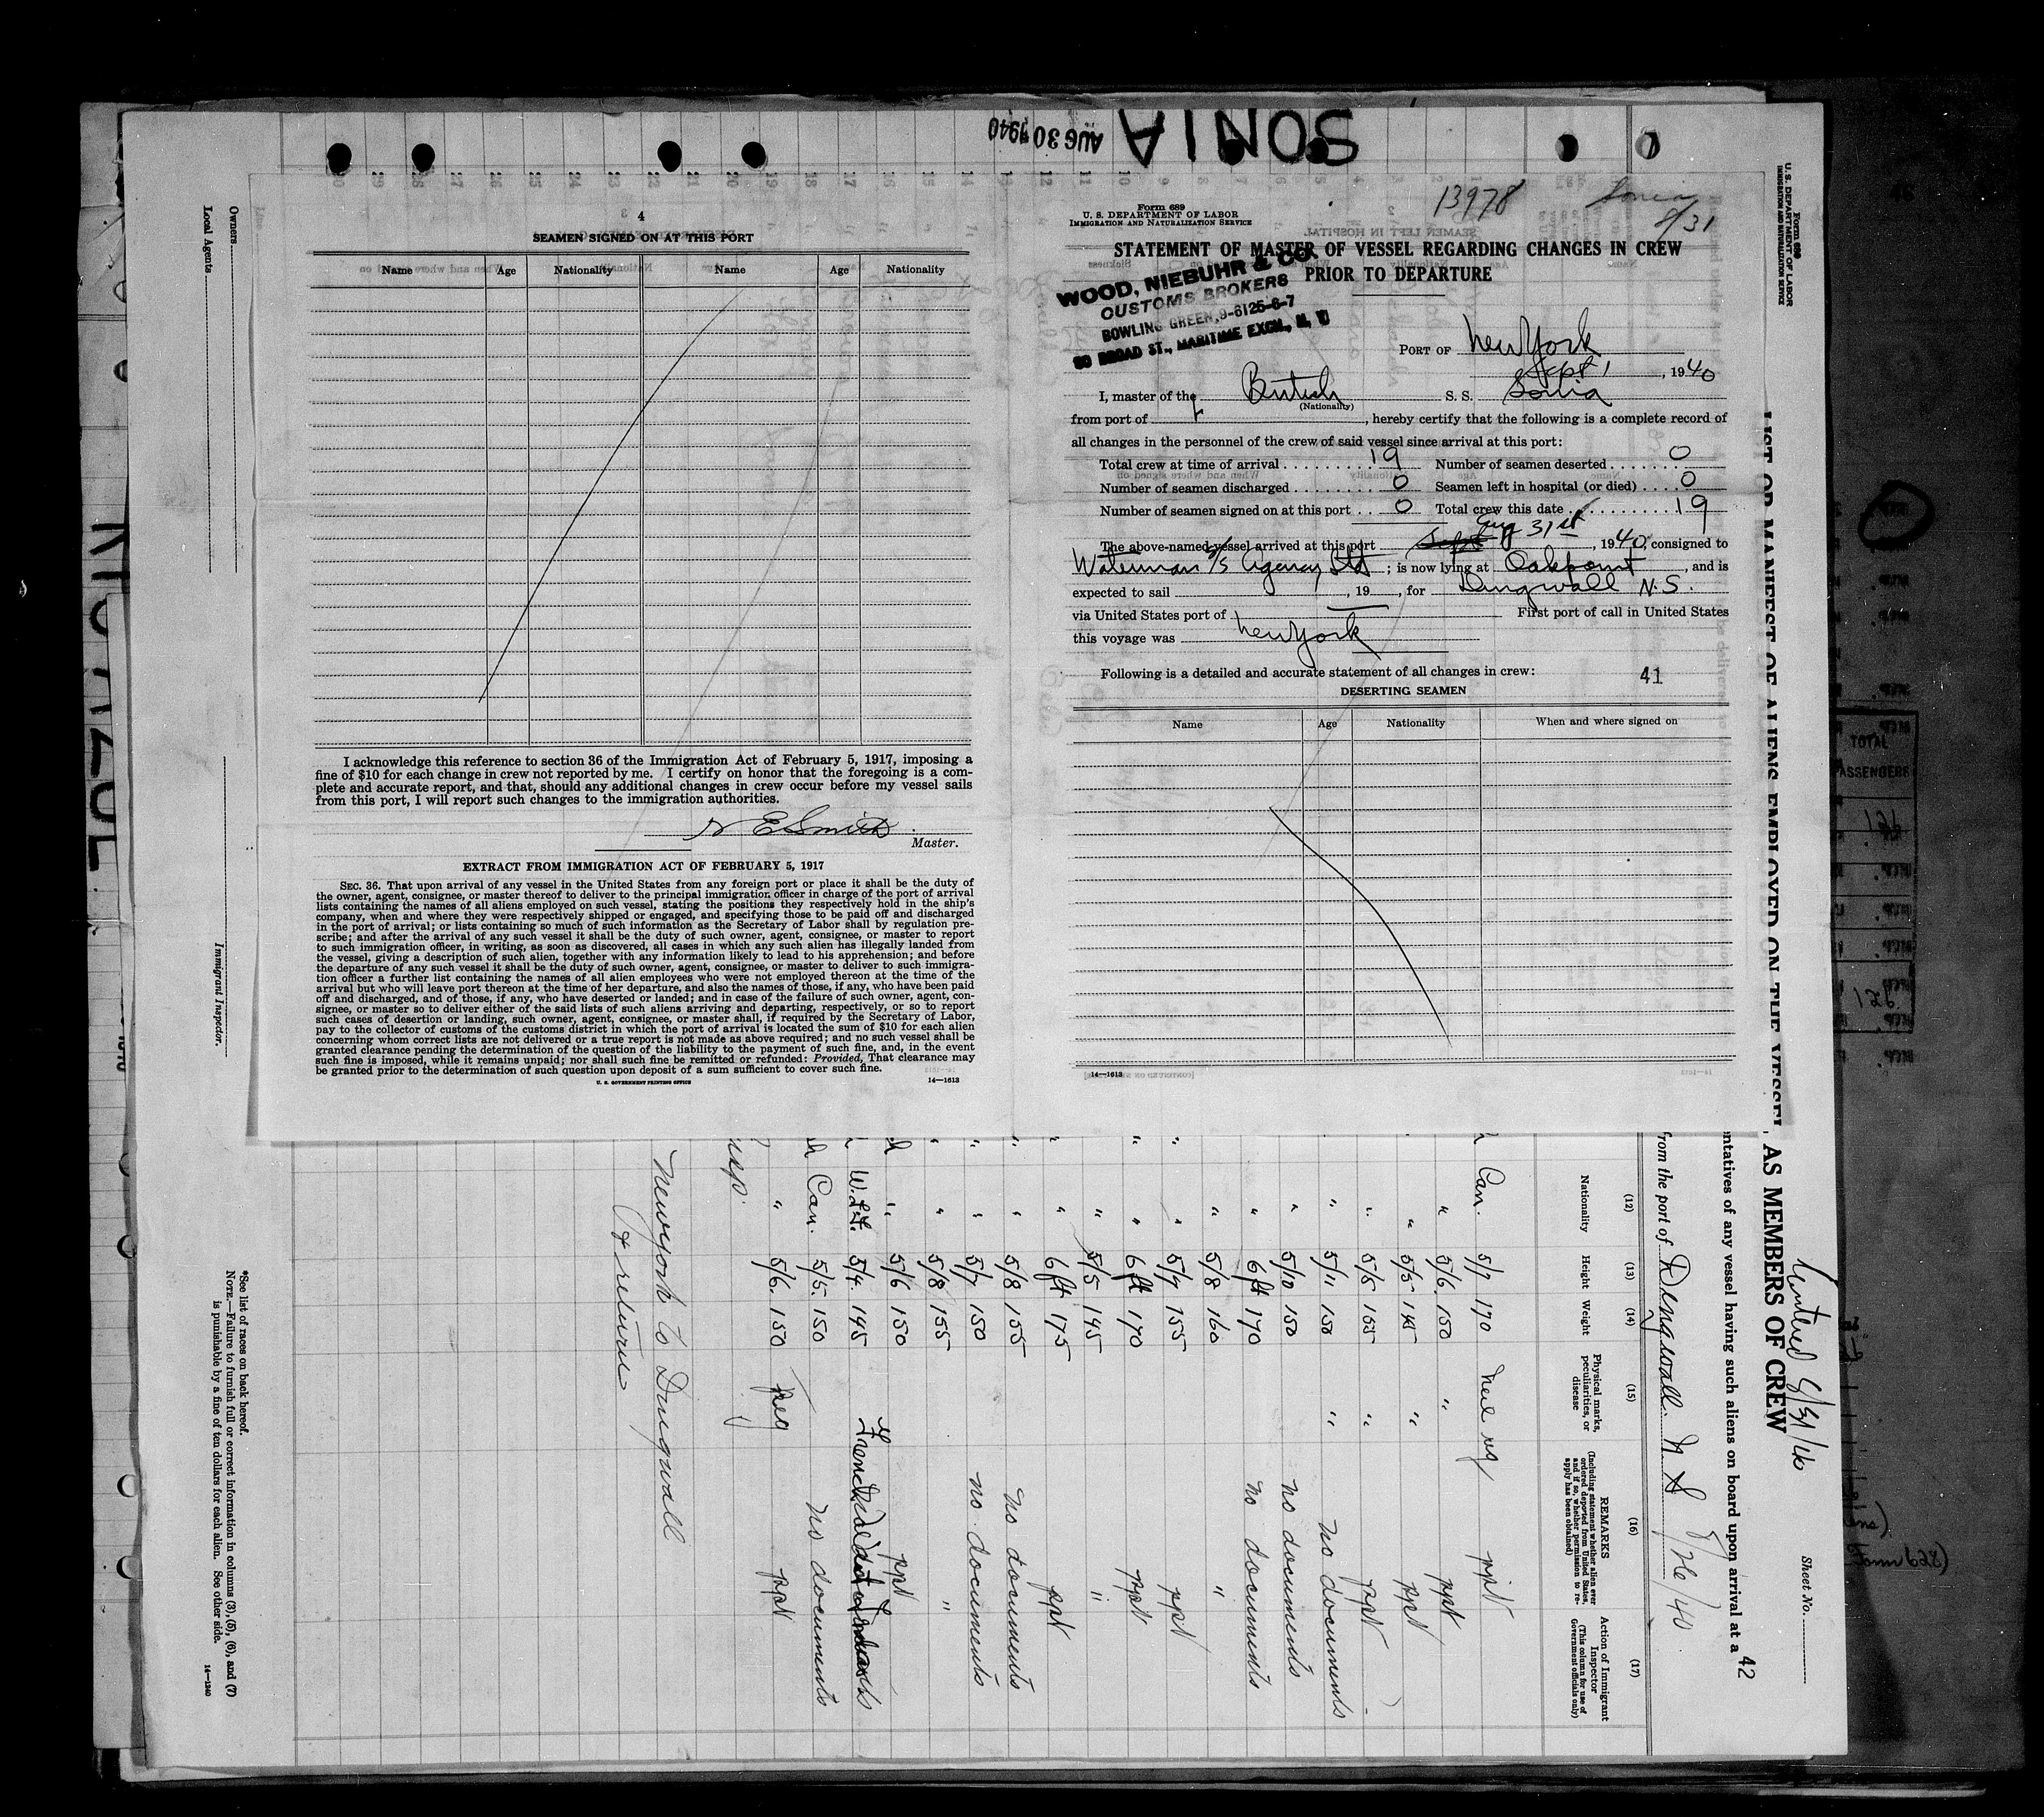 SONIA
AUG 30 1940
4
SEAMEN SIGNED ON AT THIS PORT
Name Age Nationality Name Age Nationality
I acknowledge this reference to section 36 of the Immigration Act of February 5, 1917, imposing a
fine of $10 for each change in crew not reported by me. I certify on honor that the foregoing is a com-
plete and accurate report, and that, should any additional changes in crew occur before my vessel sails
from this port, I will report such changes to the immigration authorities.
E Smith
Master.
EXTRACT FROM IMMIGRATION ACT OF FEBRUARY 5, 1917
SEC. 36. That upon arrival of any vessel in the United States from any foreign port or place it shall be the duty of
the owner, agent, consignee, or master thereof to deliver to the principal immigration officer in charge of the port of arrival
lists containing the names of all aliens employed on such vessel, stating the positions they respectively hold in the ship's
company, when and where they were respectively shipped or engaged, and specifying those to be paid off and discharged
in the port of arrival; or lists containing so much of such information as the Secretary of Labor shall by regulation pre-
scribe; and after the arrival of any such vessel it shall be the duty of such owner, agent, consignee, or master to report
to such immigration officer, in writing, as soon as discovered, all cases in which any such alien has illegally landed from
the vessel, giving a description of such alien, together with any information likely to lead to his apprehension; and before
the departure of any such vessel it shall be the duty of such owner, agent, consignee, or master to deliver to such immigra-
tion officer a further list containing the names of all alien employees who were not employed thereon at the time of the
arrival but who will leave port thereon at the time of her departure, and also the names of those, if any, who have been paid
off and discharged, and of those, if any, who have deserted or landed; and in case of the failure of such owner, agent, con-
signee, or master so to deliver either of the said lists of such aliens arriving and departing, respectively, or so to report
such cases of desertion or landing, such owner, agent, consignee, or master shall, if required by the Secretary of Labor,
pay to the collector of customs of the customs district in which the port of arrival is located the sum of $10 for each alien
concerning whom correct lists are not delivered or a true report is not made as above required; and no such vessel shall be
granted clearance pending the determination of the question of the liability to the payment of such fine, and, in the event
such fine is imposed, while it remains unpaid; nor shall such fine be remitted or refunded: Provided, That clearance may
be granted prior to the determination of such question upon deposit of a sum sufficient to cover such fine.
U. S. GOVERNMENT PRINTING OFFICE 14—1613
Form 689
U. S. DEPARTMENT OF LABOR
IMMIGRATION AND NATURALIZATION SERVICE
13978
Sonia
8/31
STATEMENT OF MASTER OF VESSEL REGARDING CHANGES IN CREW
PRIOR TO DEPARTURE
WOOD, NIEBUHR & CO.
CUSTOMS BROKERS
BOWLING GREEN, 9-6125-6-7
80 BROAD ST., MARITIME EXCH., N. Y.
PORT OF New York
Sept 1, 1940
I, master of the British S. S. Sonia
(Nationality)
from port of , hereby certify that the following is a complete record of
all changes in the personnel of the crew of said vessel since arrival at this port:
Total crew at time of arrival 19 Number of seamen deserted 0
Number of seamen discharged 0 Seamen left in hospital (or died) 0
Number of seamen signed on at this port 0 Total crew this date 19
Aug 31st
The above-named vessel arrived at this port Sept , 1940, consigned to
Waterman S/S Agency Ltd ; is now lying at Oakpoint , and is
expected to sail , 19 , for Dingwall N.S.
via United States port of First port of call in United States
this voyage was New York
Following is a detailed and accurate statement of all changes in crew: 41
DESERTING SEAMEN
Name Age Nationality When and where signed on
14—1613
Form 689
U. S. DEPARTMENT OF LABOR
IMMIGRATION AND NATURALIZATION SERVICE
Owners
Local Agents
Immigrant Inspector.
LIST OR MANIFEST OF ALIENS EMPLOYED ON THE VESSEL AS MEMBERS OF CREW
Sheet No.
ntatives of any vessel having such aliens on board upon arrival at a 42
from the port of Dingwall. N S 8/26/40
(12) Nationality
(13) Height
(14) Weight
(15) Physical marks, peculiarities, or disease
(16) REMARKS (Including statement whether alien ever ordered deported from United States, and if so, whether permission to re-apply has been obtained)
(17) Action of Immigrant Inspector (This column for use of Government officials only)
Can. 5/7 170 ppt
" 5/6. 150 " ppt
" 5/5 145 " ppt
" 5/5 165 " ppt
" 5/11 150 " no documents
" 5/10 150 no documents
" 6ft 170 no documents
" 5/8 160 "
" 5/7 155 ppt
" 6ft 170 ppt
" 5/5 145 "
" 6ft 175 ppt
" 5/8 155 no documents
" 5/7 150 no documents
" 5/8 155 "
" 5/6 150 ppt
5/4. 145
Can. 5/5. 150 no documents
" 5/6. 150 neg ppt
New York to Dingwall
& return
*See list of races on back hereof.
NOTE.—Failure to furnish full or correct information in columns (3), (5), (6), and (7)
is punishable by a fine of ten dollars for each alien. See other side.
14—1240
TOTAL
PASSENGERS
161
126
Form 628)